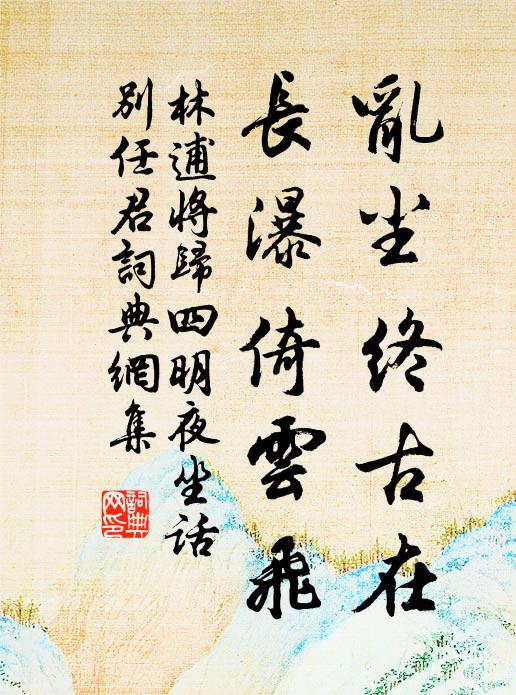 亂尘終古在
長瀑倚雲飛
林逋將歸四明夜坐話
別任君詞典網集
詞典
网印